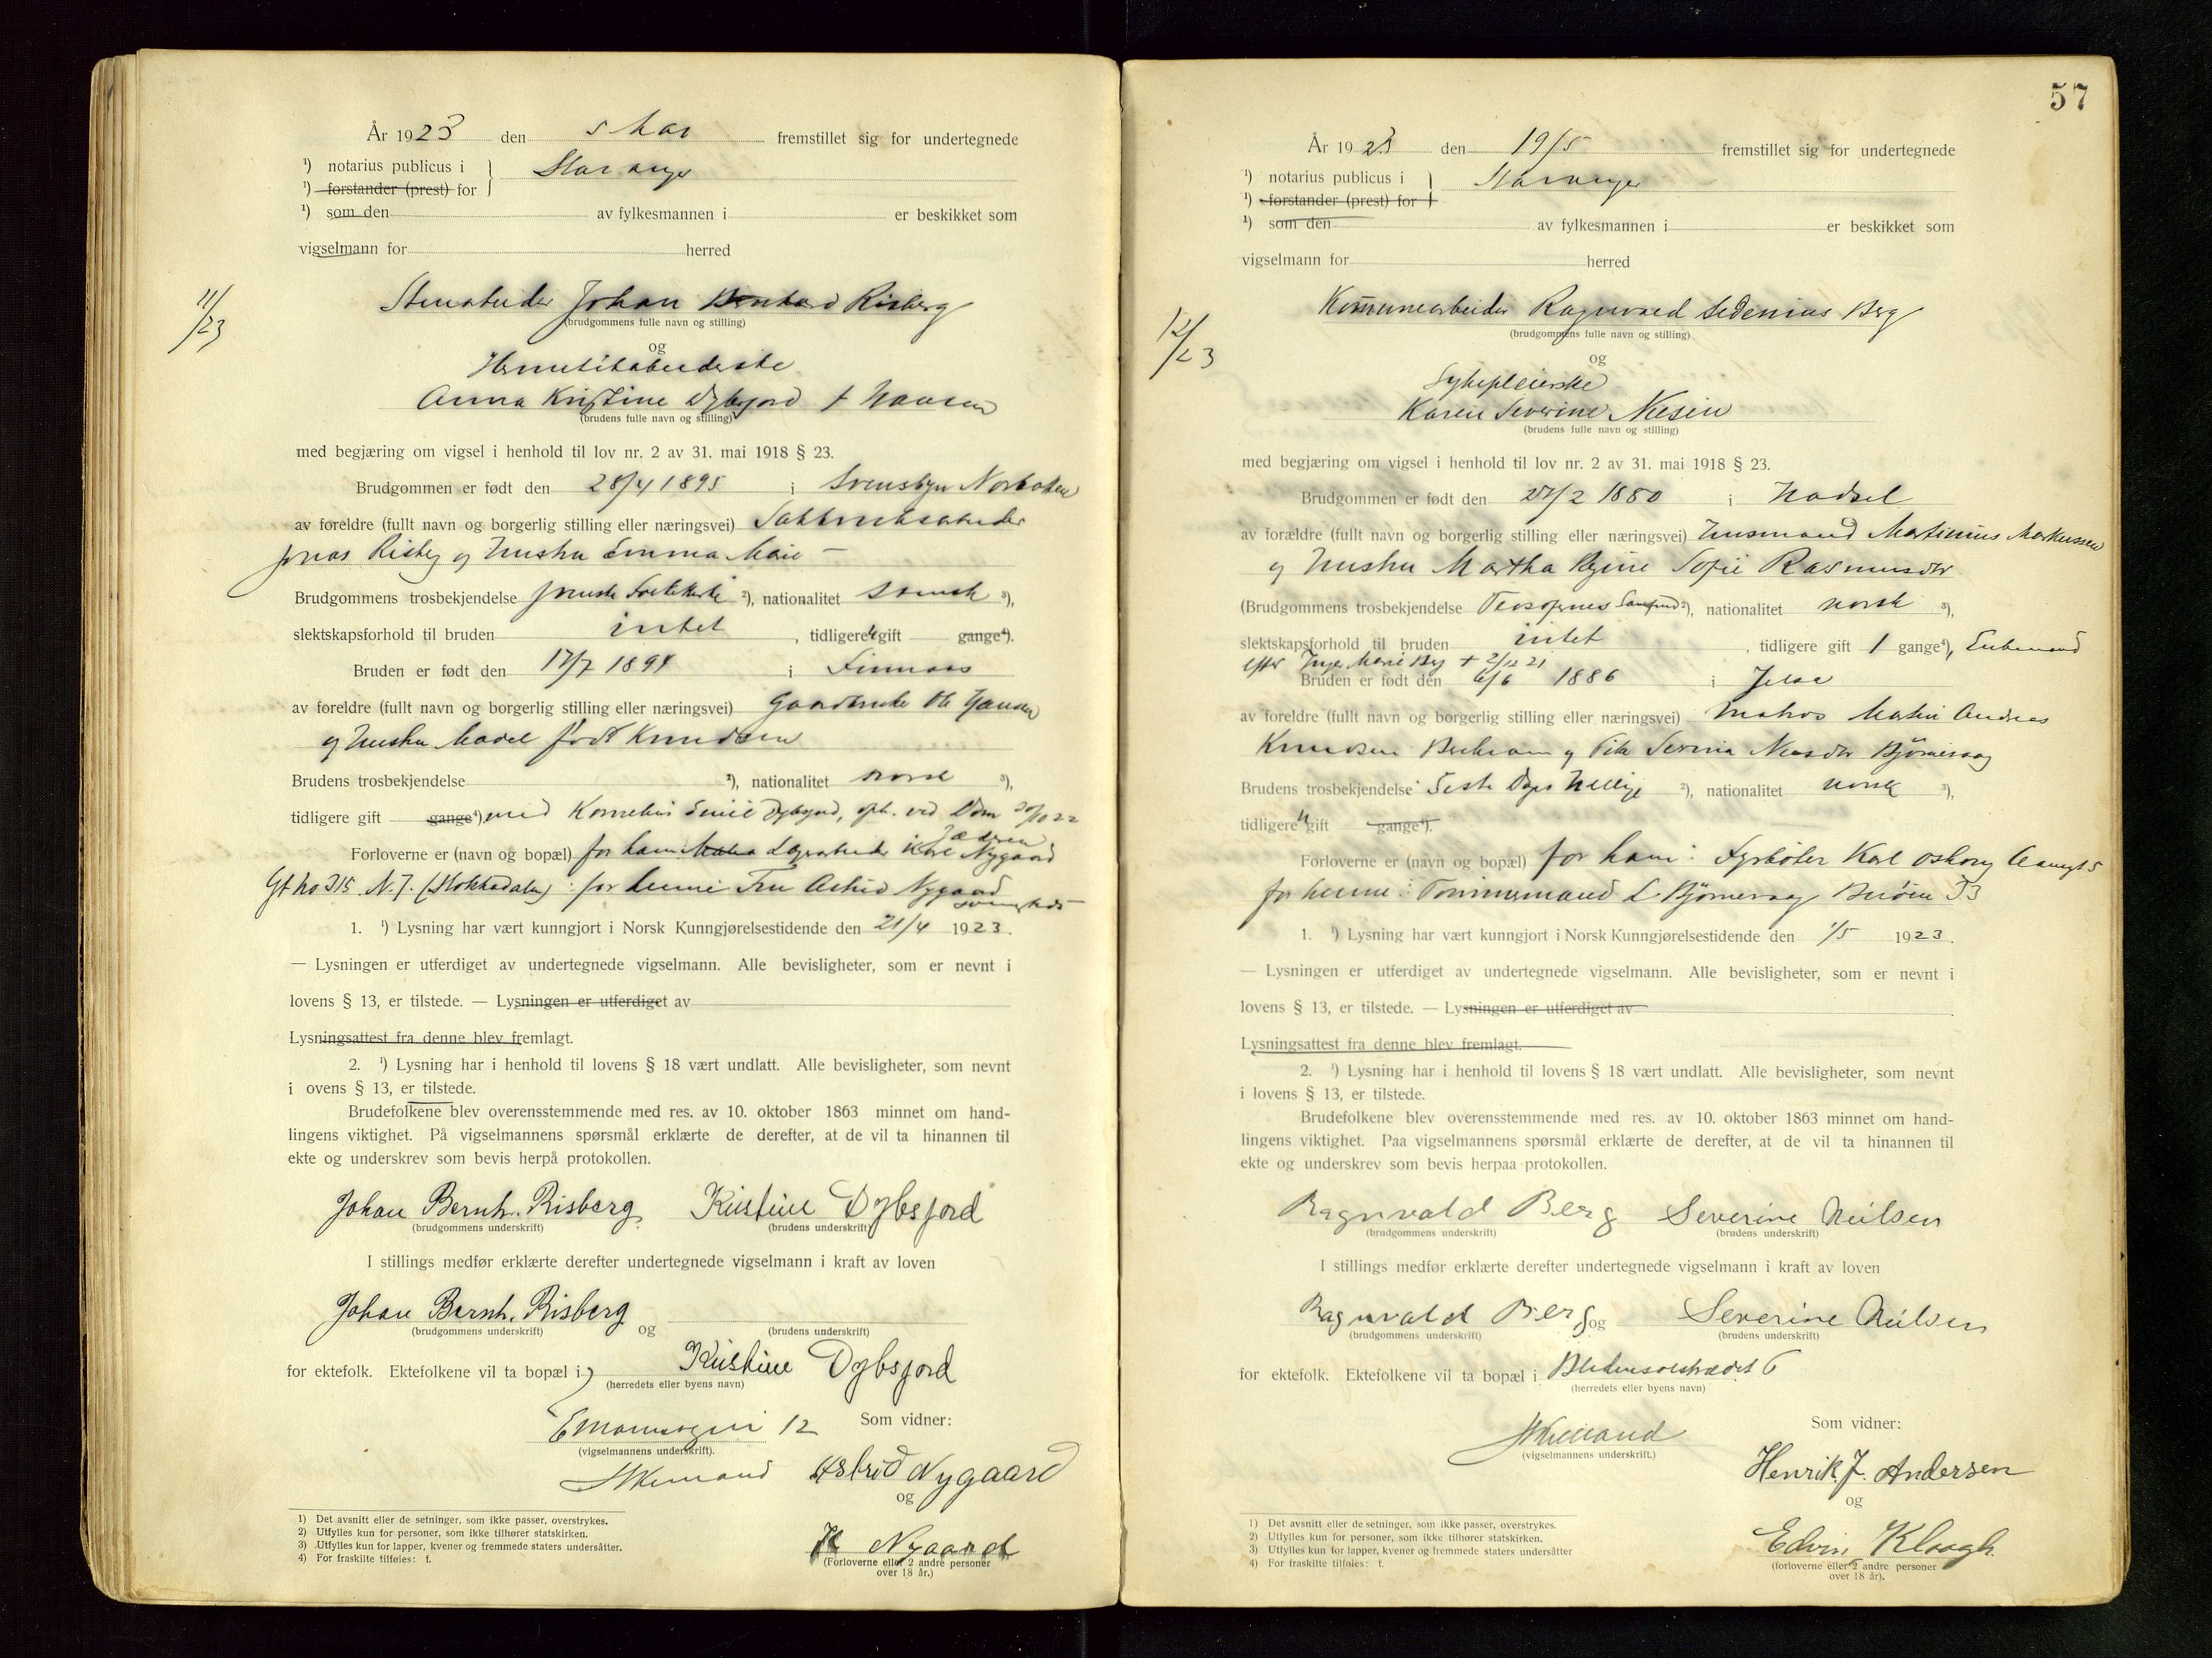 År 1923 den 5 Mai fremstillet sig for undertegnede
¹) notarius publicus i } Stavanger
¹) forstander (prest) for
¹) som den av fylkesmannen i er beskikket som
vigselmann for herred
11/23
Johan Bernhard Risberg
(brudgommens fulle navn og stilling)
og
Anna Kristine Dybsjord f Hansen
(brudens fulle navn og stilling)
med begjæring om vigsel i henhold til lov nr. 2 av 31. mai 1918 § 23.
Brudgommen er født den 28/4 1895 i Svensbyn Norbotten
av foreldre (fullt navn og borgerlig stilling eller næringsvei)
Jonas Risberg og Hustru Emma Marie –
Brudgommens trosbekjendelse svenske ²), nationalitet svensk ³),
slektskapsforhold til bruden intet , tidligere ei gift gange⁴).
Bruden er født den 17/7 1894 i Finnaas
av foreldre (fullt navn og borgerlig stilling eller næringsvei) Gaardbruker Ole Hansen
og Hustru født Knudsen
Brudens trosbekjendelse ²), nationalitet norsk ³),
tidligere gift gange⁴), med Kornelius Dybsjord, oph. ved Dom 20/10 22
Forloverne er (navn og bopæl) for ham Nygaard
Gt No 315 N.J. : for henne Fru Astrid Nygaard
sammesteds
1. ¹) Lysning har vært kunngjort i Norsk Kunngjørelsestidende den 21/4 1923.
— Lysningen er utferdiget av undertegnede vigselmann. Alle bevisligheter, som er nevnt i
lovens § 13, er tilstede. — Lysningen er utferdiget av
Lysningsattest fra denne blev fremlagt.
2. ¹) Lysning har i henhold til lovens § 18 vært undlatt. Alle bevisligheter, som nevnt
i ovens § 13, er tilstede.
Brudefolkene blev overensstemmende med res. av 10. oktober 1863 minnet om hand-
lingens viktighet. På vigselmannens spørsmål erklærte de derefter, at de vil ta hinannen til
ekte og underskrev som bevis herpå protokollen.
Johan Bernh. Risberg Kristine Dybsjord
(brudgommens underskrift) (brudens underskrift)
I stillings medfør erklærte derefter undertegnede vigselmann i kraft av loven
Johan Bernh. Risberg og
(brudgommens underskrift) (brudens underskrift)
for ektefolk. Ektefolkene vil ta bopæl i Kristine Dybsjord
(herredets eller byens navn)
12 Som vidner:
(vigselmannens underskrift).
Astrid Nygaard
og
Nygaard
(Forloverne eller 2 andre personer
over 18 år.)
1) Det avsnitt eller de setninger, som ikke passer, overstrykes.
2) Utfylles kun for personer, som ikke tilhører statskirken.
3) Utfylles kun for lapper, kvener og fremmede staters undersåtter.
4) For fraskilte tilføies: f.
57
År 1923 den 19/5 fremstillet sig for undertegnede
¹) notarius publicus i } Stavanger
¹) forstander (prest) for
¹) som den av fylkesmannen i er beskikket som
vigselmann for herred
12/23
Kommunearbeider Ragnvald Sedenius Berg
(brudgommens fulle navn og stilling)
og
Sykepleierske
Karen Severine Nilsen
(brudens fulle navn og stilling)
med begjæring om vigsel i henhold til lov nr. 2 av 31. mai 1918 § 23.
Brudgommen er født den 27/2 1880 i Hadsel
av forældre (fullt navn og borgerlig stilling eller næringsvei) Husmand Martinius Markussen
og Hustru Martha Regine Sofie Rasmusdtr
(Brudgommens trosbekjendelse Teosofernes Samfund ²), nationalitet norsk ³),
slektskapsforhold til bruden intet , tidligere gift 1 gange⁴), Enkemand
efter Inger Marie Berg + 2/12 21
Bruden er født den 6/6 1886 i Jelsa
av foreldre (fullt navn og borgerlig stilling eller næringsvei) Matros Martin Andreas
Knudsen og Pike Serina Bjørnevaag
Brudens trosbekjendelse Siste Dages Hellige ²), nationalitet norsk ³),
tidligere ei gift gange⁴).
Forloverne er (navn og bopæl) for ham: Fyrbøter Karl
for henne: Tømmermand L. Bjørnevaag 53
1. ¹) Lysning har vært kunngjort i Norsk Kunngjørelsestidende den 1/5 1923.
— Lysningen er utferdiget av undertegnede vigselmann. Alle bevisligheter, som er nevnt i
lovens § 13, er tilstede. — Lysningen er utferdiget av
Lysningsattest fra denne blev fremlagt.
2. ¹) Lysning har i henhold til lovens § 18 vært undlatt. Alle bevisligheter, som nevnt
i lovens § 13, er tilstede.
Brudefolkene blev overensstemmende med res. av 10. oktober 1863 minnet om hand-
lingens viktighet. Paa vigselmannens spørsmål erklærte de derefter, at de vil ta hinannen til
ekte og underskrev som bevis herpaa protokollen.
Ragnvald Berg Severine Nilsen
(brudgommens underskrift) (brudens underskrift)
I stillings medfør erklærte derefter undertegnede vigselmann i kraft av loven
Ragnvald Berg og Severine Nilsen
(brudgommens underskrift) (brudens underskrift)
for ektefolk. Ektefolkene vil ta bopæl i 6
(herredets eller byens navn)
Som vidner:
(vigselmannens underskrift.)
Henrik J. Andersen
og
Edvin Klaagh
(forloverne eller 2 andre personer
over 18 år).
1) Det avsnitt eller de setninger, som ikke passer, overstrykes.
2) Utfylles kun for personer, som ikke tilhører statskirken.
3) Utfylles kun for lapper, kvener og fremmede staters undersåtter
4) For fraskilte tilføies: f.